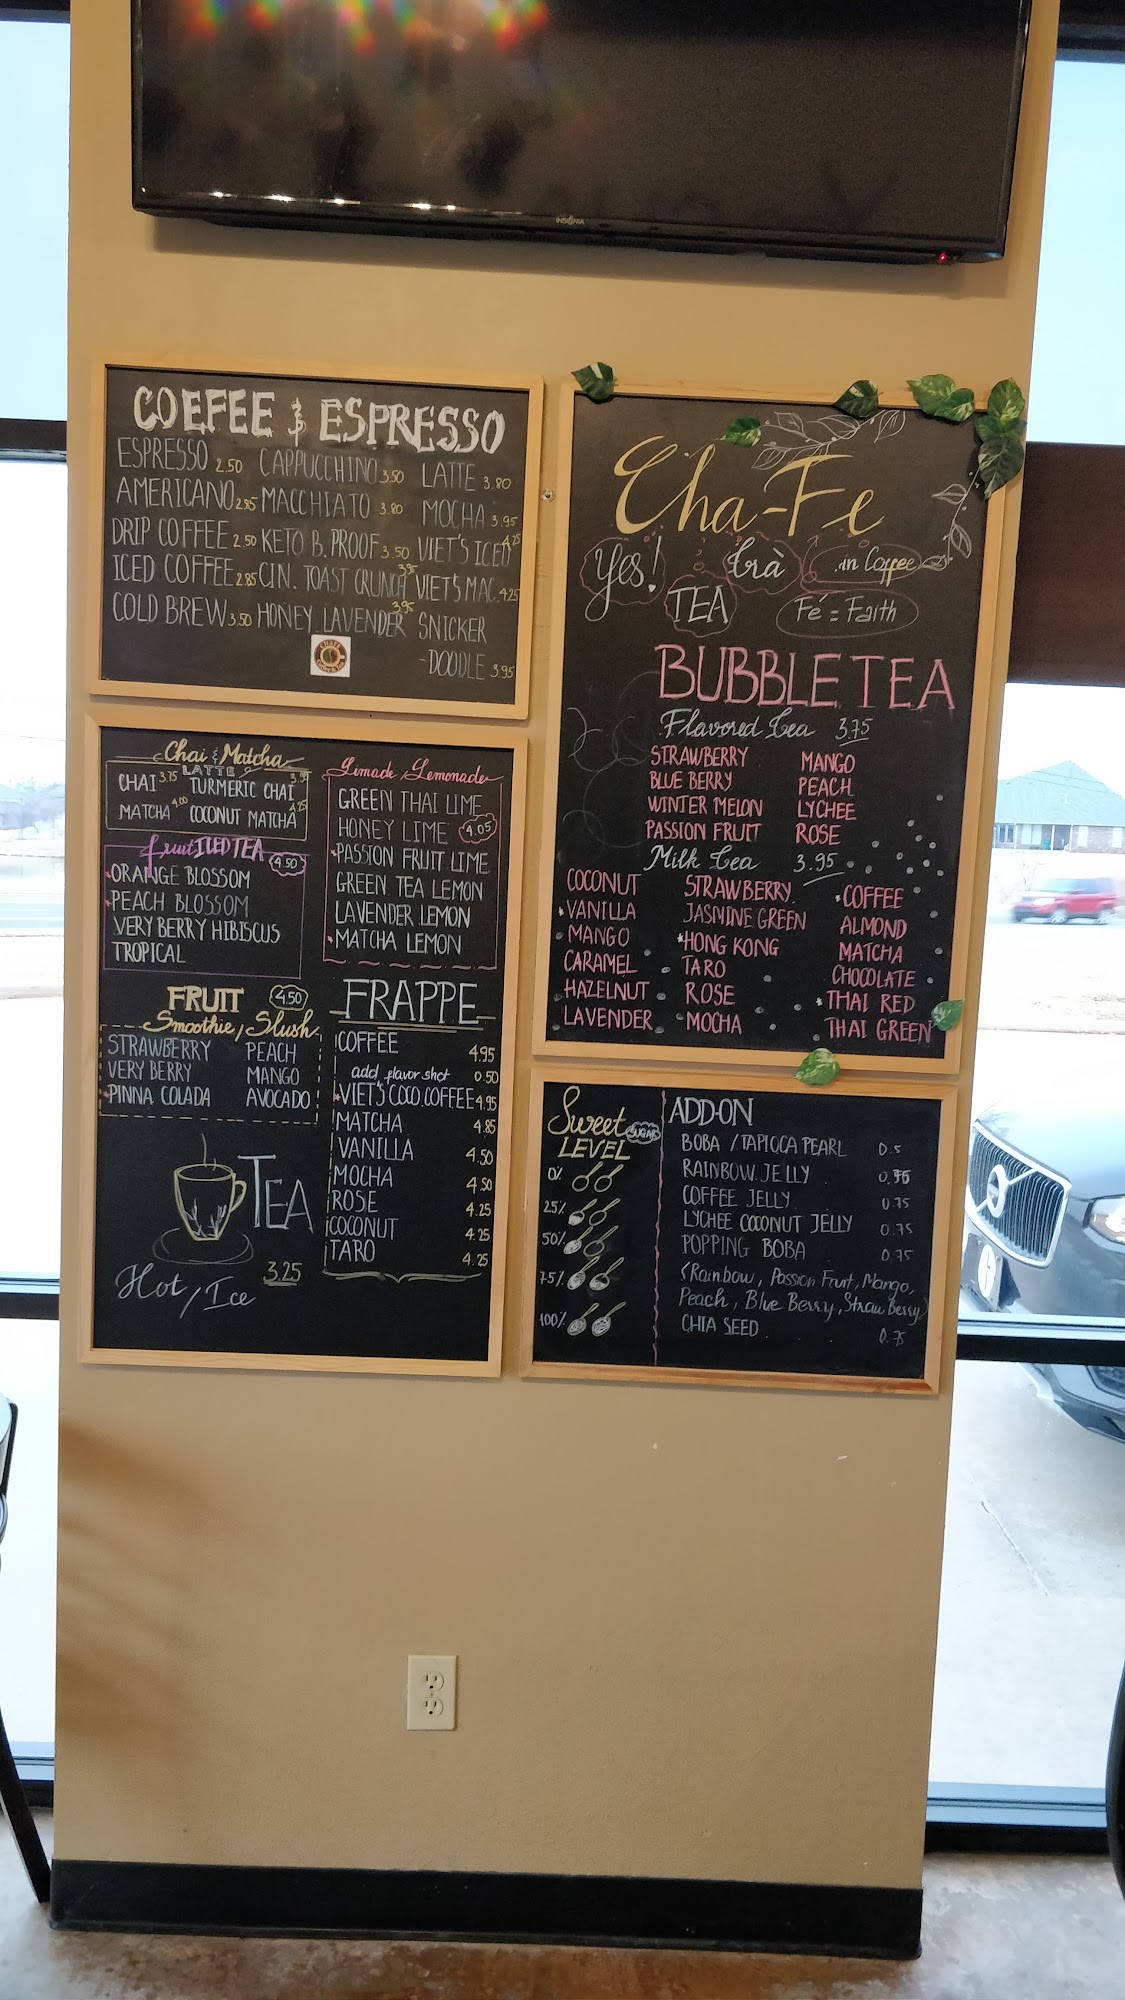 INSIGNIA
COEFEE & ESPRESSO
ESPRESSO 2.50 CAPPUCCHINO 3.50 LATTE 3.80
AMERICANO 2.85 MACCHIATO 3.80 MOCHA 3.95
DRIP COFFEE 2.50 KETO B. PROOF 3.50 VIET'S ICED 4.25
ICED COFFEE 2.85 CIN. TOAST CRUNCH 3.95 VIET'S MAC. 4.25
COLD BREW 3.50 HONEY LAVENDER 3.95 SNICKER
-DOODLE 3.95
Chai & Matcha
LATTE
CHAI 3.75 TURMERIC CHAI 3.95
MATCHA 4.00 COCONUT MATCHA 4.25
fruit ICED TEA 4.50
*ORANGE BLOSSOM
*PEACH BLOSSOM
VERY BERRY HIBISCUS
TROPICAL
FRUIT 4.50
Smoothie/Slush
STRAWBERRY PEACH
VERY BERRY MANGO
*PINNA COLADA AVOCADO
TEA
Hot/Ice 3.25
Limade/Lemonade
GREEN THAI LIME
HONEY LIME 4.05
*PASSION FRUIT LIME
GREEN TEA LEMON
LAVENDER LEMON
*MATCHA LEMON
FRAPPE
COFFEE 4.95
add flavor shot 0.50
*VIET'S COCO.COFFEE 4.95
MATCHA 4.85
VANILLA 4.50
MOCHA 4.50
ROSE 4.25
COCONUT 4.25
TARO 4.25
Cha-Fe
Yes! trà ..in Coffee
TEA Fé = Faith
BUBBLE TEA
Flavored tea 3.75
STRAWBERRY MANGO
BLUE BERRY PEACH
WINTER MELON LYCHEE
PASSION FRUIT ROSE
Milk tea 3.95
COCONUT STRAWBERRY *COFFEE
*VANILLA JASMINE GREEN ALMOND
MANGO *HONG KONG MATCHA
CARAMEL TARO CHOCOLATE
HAZELNUT ROSE *THAI RED
LAVENDER MOCHA THAI GREEN
Sweet SUGAR
LEVEL
0%
25%
50%
75%
100%
ADD-ON
BOBA / TAPIOCA PEARL 0.5
RAINBOW JELLY 0.75
COFFEE JELLY 0.75
LYCHEE COCONUT JELLY 0.75
POPPING BOBA 0.75
(Rainbow, Passion Fruit, Mango,
Peach, Blue Berry, Straw Berry)
CHIA SEED 0.75